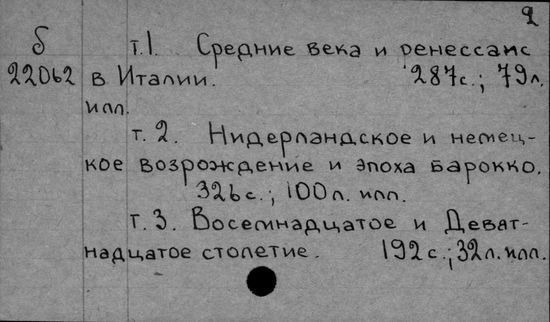 2
б т.1. Средние века и ренессанс
22062 в Италии. 287с.; 79л.
илл.
т. 2. Нидерландское и немец-
кое возрождение и эпоха барокко.
326с.; 100л. илл.
т. 3. Восемнадцатое и Девят-
надцатое столетие. 192с.; 32л. илл.